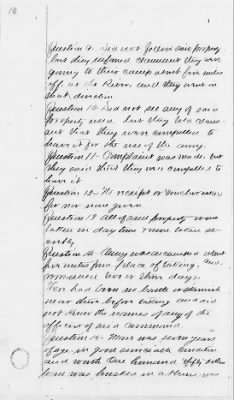 10
Question 9. Did not follow said property
but they informed claimant they were
going to their camp about five miles
off at the River, and they went in
that direction
Question 10 Did not see any of said
property used but they told claim
ant that they were compelled to
have it for the use of the army.
Question 11- Complaint was made but
they said that they were compelled to
have it
Question 12- No receipt or voucher asked
for nor none given
Question 13 All of said property was
taken in day time none taken se
cretly
Question 14 Army was encamped about
five miles from place of taking and
remained two or three days.
There had been no battle or skirmish
near there before taking and did
not know the names of any of the
officers of said command.
Question 15- Mare was seven years
of age in good condition
and worth two hundred & fifty dollars